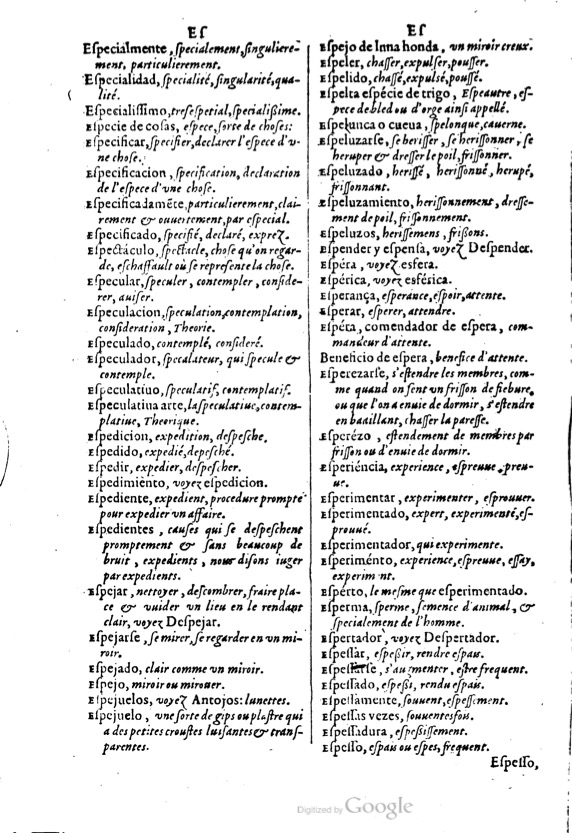 ES
Eſpecialmente, ſpecialement, ſinguliere-
ment, particulierement.
Eſpecialidad, ſpecialité, ſingularité, qua-
lité.
Eſpecialiſſimo, treſeſpetial, ſpecialißime.
Eſpecie de coſas, eſpece, ſorte de choſes:
Eſpecificar, ſpecifier, declarer l'eſpece d'v-
ne choſe.
Eſpecificacion, ſpecification, declaration
de l'eſpece d'vne choſe.
Eſpecificadamẽte, particulierement, clai-
rement & ouuertement, par eſpecial.
Eſpecificado, ſpecifié, declaré, exprez.
Eſpectáculo, ſpectacle, choſe qu'on regar-
de, eſchaffault où ſe repreſente la choſe.
Eſpecular, ſpeculer, contempler, conſide-
rer, auiſer.
Eſpeculacion, ſpeculation, contemplation,
conſideration, Theorie.
Eſpeculado, contemplé, conſideré.
Eſpeculador, ſpecalateur, qui ſpecule &
contemple.
Eſpeculatiuo, ſpeculatif, contemplatif.
Eſpeculatiua arte, la ſpeculatiue, contem-
platiue, Theorique.
Eſpedicion, expedition, deſpeſche.
Eſpedido, expedié, depeſché.
Eſpedir, expedier, deſpeſcher.
Eſpedimiento, voyez eſpedicion.
Eſpediente, expedient, procedure prompte
pour expedier vn affaire.
Eſpedientes, cauſes qui ſe deſpeſchent
promptement & ſans beaucoup de
bruit, expedients, nous diſons iuger
par expedients.
Eſpejar, nettoyer, deſcombrer, fraire pla-
ce & vuider vn lieu en le rendant
clair, voyez Deſpejar.
Eſpejarſe, ſe mirer, ſe regarder en vn mi-
roir.
Eſpejado, clair comme vn miroir.
Eſpejo, miroir ou mirouer.
Eſpejuelos, voyez Antojos: lunettes.
Eſpejuelo, vne ſorte de gips ou plaſtre qui
a des petites crouſtes luiſantes & tranſ-
parentes.
ES
Eſpejo de Inna honda, vn miroir creux.
Eſpeler, chaſſer, expulſer, pouſſer.
Eſpelido, chaſſé, expulsé, pouſſé.
Eſpelta eſpécie de trigo, Eſpeautre, eſ-
pece de bled ou d'orge ainſi appellé.
Eſpelunca o cueua, ſpelonque, cauerne.
Eſpeluzarſe, ſe heriſſer, ſe heriſſonner, ſe
heruper & dreſſer le poil, friſſonner.
Eſpeluzado, heriſſé, heriſſonné, herupé,
friſſonnant.
Eſpeluzamiento, heriſſonnement, dreſſe-
ment de poil, friſſonnement.
Eſpeluzos, heriſſemens, frißons.
Eſpender y eſpenſa, voyez Deſpender.
Eſpéra, voyez esfera.
Eſpérica, voyez esférica.
Eſperança, eſperance, eſpoir, attente.
Eſperar, eſperer, attendre.
Eſpéra, comendador de eſpera, com-
mandeur d'attente.
Beneficio de eſpera, benefice d'attente.
Eſperezarſe, s'eſtendre les membres, com-
me quand on ſent vn friſſon de fiebure,
ou que l'on a enuie de dormir, s'eſtendre
en baaillant, chaſſer la pareſſe.
Eſperézo, eſtendement de membres par
friſſon ou d'enuie de dormir.
Eſperiéncia, experience, eſpreuue, preu-
ue.
Eſperimentar, experimenter, eſprouuer.
Eſperimentado, expert, experimenté, eſ-
prouué.
Eſperimentador, qui experimente.
Eſperiménto, experience, eſpreuue, eſſay,
experim nt.
Eſpérto, le meſme que eſperimentado.
Eſperma, ſperme, ſemence d'animal, &
ſpecialement de l'homme.
Eſpertador, voyez Deſpertador.
Eſpeſſar, eſpeßir, rendre eſpais.
Eſpeſſarſe, s'augmenter, eſtre frequent.
Eſpeſſado, eſpeßis, rendu eſpais.
Eſpeſſamente, ſouuent, eſpeſſement.
Eſpeſſas vezes, ſouuentesfois.
Eſpeſſadura, eſpeßiſſement.
Eſpeſſo, eſpais ou eſpes, frequent.
Eſpeſſo,
Digitized by Google